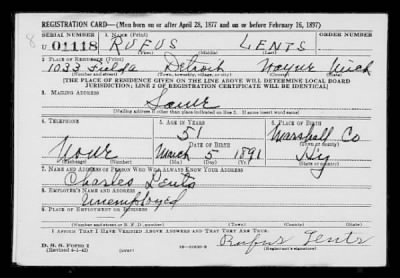 REGISTRATION CARD—(Men born on or after April 28, 1877 and on or before February 16, 1897)
SERIAL NUMBER 1. NAME (Print) ORDER NUMBER
U 01118 RUFUS LENTS
(First) (Middle) (Last)
2. PLACE OF RESIDENCE (Print)
1033 Detroit Wayne Mich
(Number and street) (Town, township, village, or city) (County) (State)
[THE PLACE OF RESIDENCE GIVEN ON THE LINE ABOVE WILL DETERMINE LOCAL BOARD
JURISDICTION; LINE 2 OF REGISTRATION CERTIFICATE WILL BE IDENTICAL]
3. MAILING ADDRESS
Same
[Mailing address if other than place indicated on line 2. If same insert word same]
4. TELEPHONE 5. AGE IN YEARS 6. PLACE OF BIRTH
51 Marshall Co
DATE OF BIRTH (Town or county)
None March 5 1891 Ky
(Exchange) (Number) (Mo.) (Day) (Yr.) (State or country)
7. NAME AND ADDRESS OF PERSON WHO WILL ALWAYS KNOW YOUR ADDRESS
Charles Lents
8. EMPLOYER'S NAME AND ADDRESS
Unemployed
9. PLACE OF EMPLOYMENT OR BUSINESS
(Number and street or R. F. D. number) (Town) (County) (State)
I AFFIRM THAT I HAVE VERIFIED ABOVE ANSWERS AND THAT THEY ARE TRUE.
D. S. S. Form 1
(Revised 4-1-42) (over) Rufus Lents
(Registrant's signature)